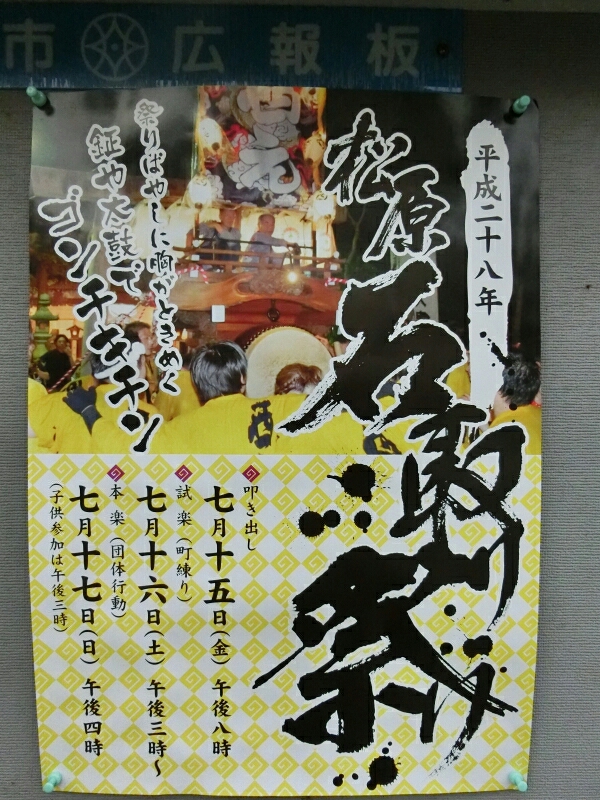 市 広報板
平成二十八年
松原
石取祭
祭りばやしに胸がときめく
鉦や太鼓で
ゴンチキチン
叩き出し
七月十五日(金) 午後八時
試楽(町練り)
七月十六日(土) 午後三時〜
本楽(団体行動)
七月十七日(日) 午後四時
(子供参加は午後三時)
西